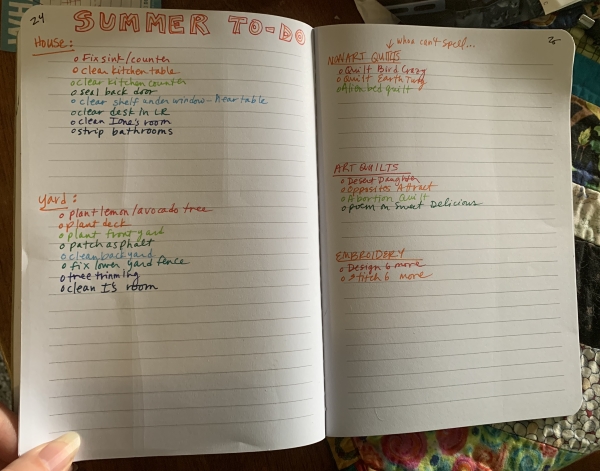 24
SUMMER TO-DO
House:
o Fix sink/counter
o clean kitchen table
o clear kitchen counter
o seal back door
o clear shelf under window - near table
o clear desk in LR
o clean Ione's room
o strip bathrooms
Yard:
o plant lemon/avocado tree
o plant deck
o plant front yard
o patch asphalt
o clean backyard
o fix lower yard fence
o tree trimming
o clean I's room
25
↓ whoa can't spell...
NON ART QUILTS
o Quilt Bird Crazy
o Quilt Earth
o bed quilt
ART QUILTS
o Desert Daughter
o Opposites Attract
o Abortion Quilt
o poem on sweet Delicious
EMBROIDERY
o Design 6 more
o stitch 6 more